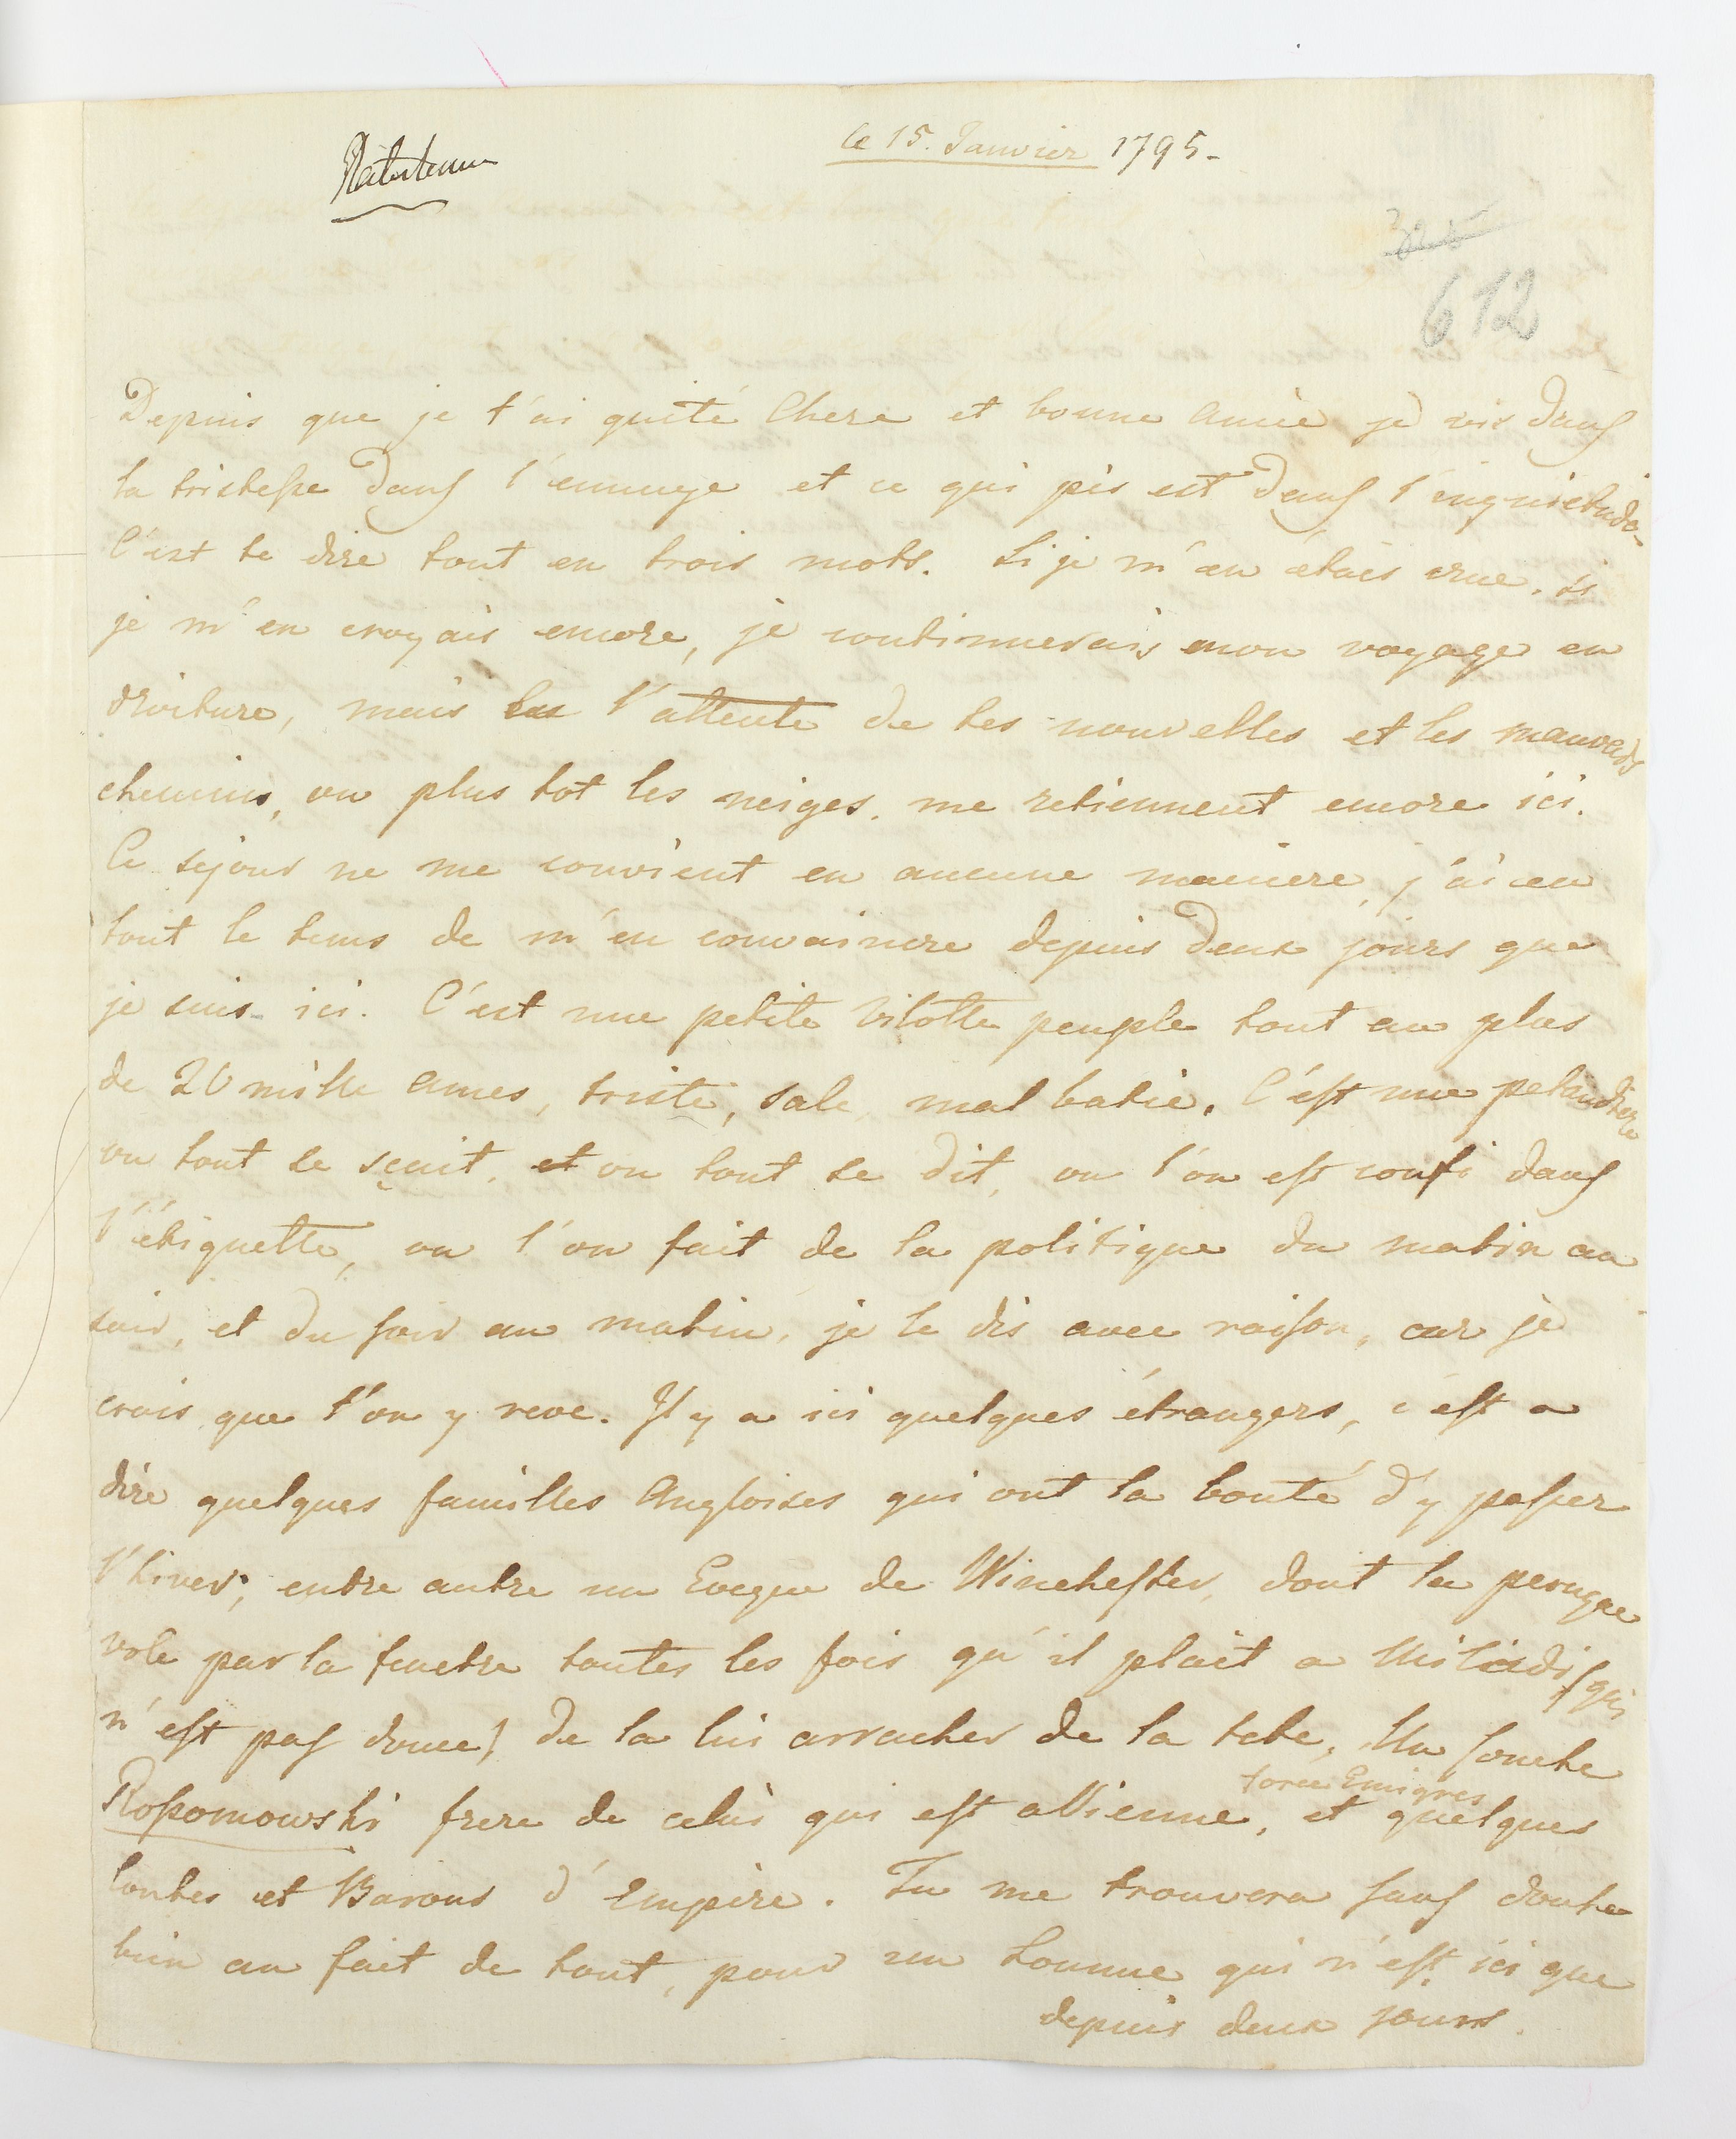 le 15. Janvier 1795-
612
Depuis que je t'ai quité Chere et bonne Amie je vis dans
la tristesse dans l'ennuye et ce qui pis est dans l'inquietude-
C'est te dire tout en trois mots. Si je m'en étais crue, si
je m'en croyais encore, je continuerais mon voyage en
droiture, mais l'attente de tes nouvelles et les mauvais
chemins, ou plus tot les neiges, me retiennent encore ici.
Ce sejour ne me convient en aucune maniere, j'ai eu
tout le tems de m'en convaincre depuis deux jours que
je suis ici. C'est une petite vilotte peuple tout au plus
de 20 mille ames, triste, sale, mal batie. C'est une petaudiere
ou tout se sçait, et ou tout se dit, ou l'on est confi dans
l'étiquette, ou l'on fait de la politique du matin au
soir, et du soir au matin, je le dis avec raison, car je
crois que l'on y reve. Il y a ici quelques étrangers, c'est a
dire quelques familles Angloises qui ont la bonté d'y passer
l'hiver; entre autre un Eveque de Winchester, dont la peruque
vole par la fenetre toutes les fois qu'il plait a Miladi (qui
n'est pas douce) de la lui arracher de la tete, Un
force Emigres
frere de celui qui est a Vienne, et quelques
Contes et Barons d'Empire. Tu me trouvera sans doute
bien au fait de tout, pour un homme qui n'est ici que
depuis deux jours.